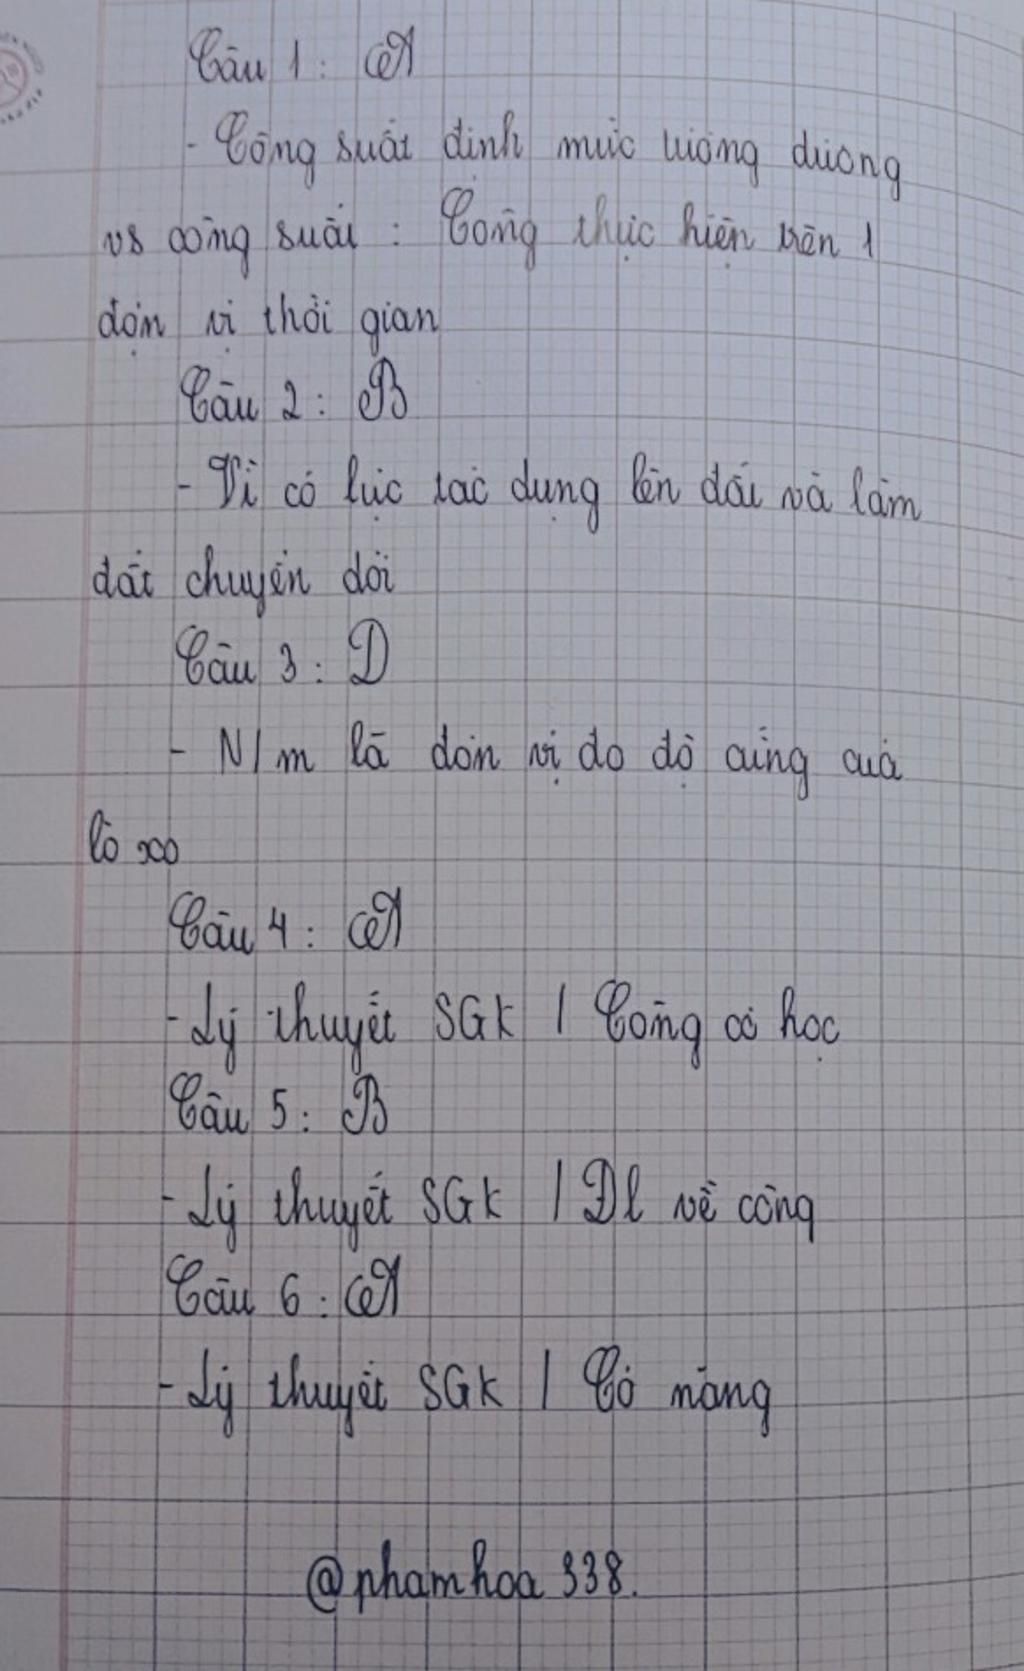 Câu 1: A
- Công suất định mức tương đương
vs công suất: Công thực hiện trên 1
đơn vị thời gian
Câu 2: B
- Vì có lực tác dụng lên đất và làm
đất chuyển dời
Câu 3: D
- N/m là đơn vị đo độ cứng của
lò xo
Câu 4: A
- Lý thuyết SGK / Công cơ học
Câu 5: B
- Lý thuyết SGK / Đl về công
Câu 6: A
- Lý thuyết SGK / Cơ năng
@phamhoa338.